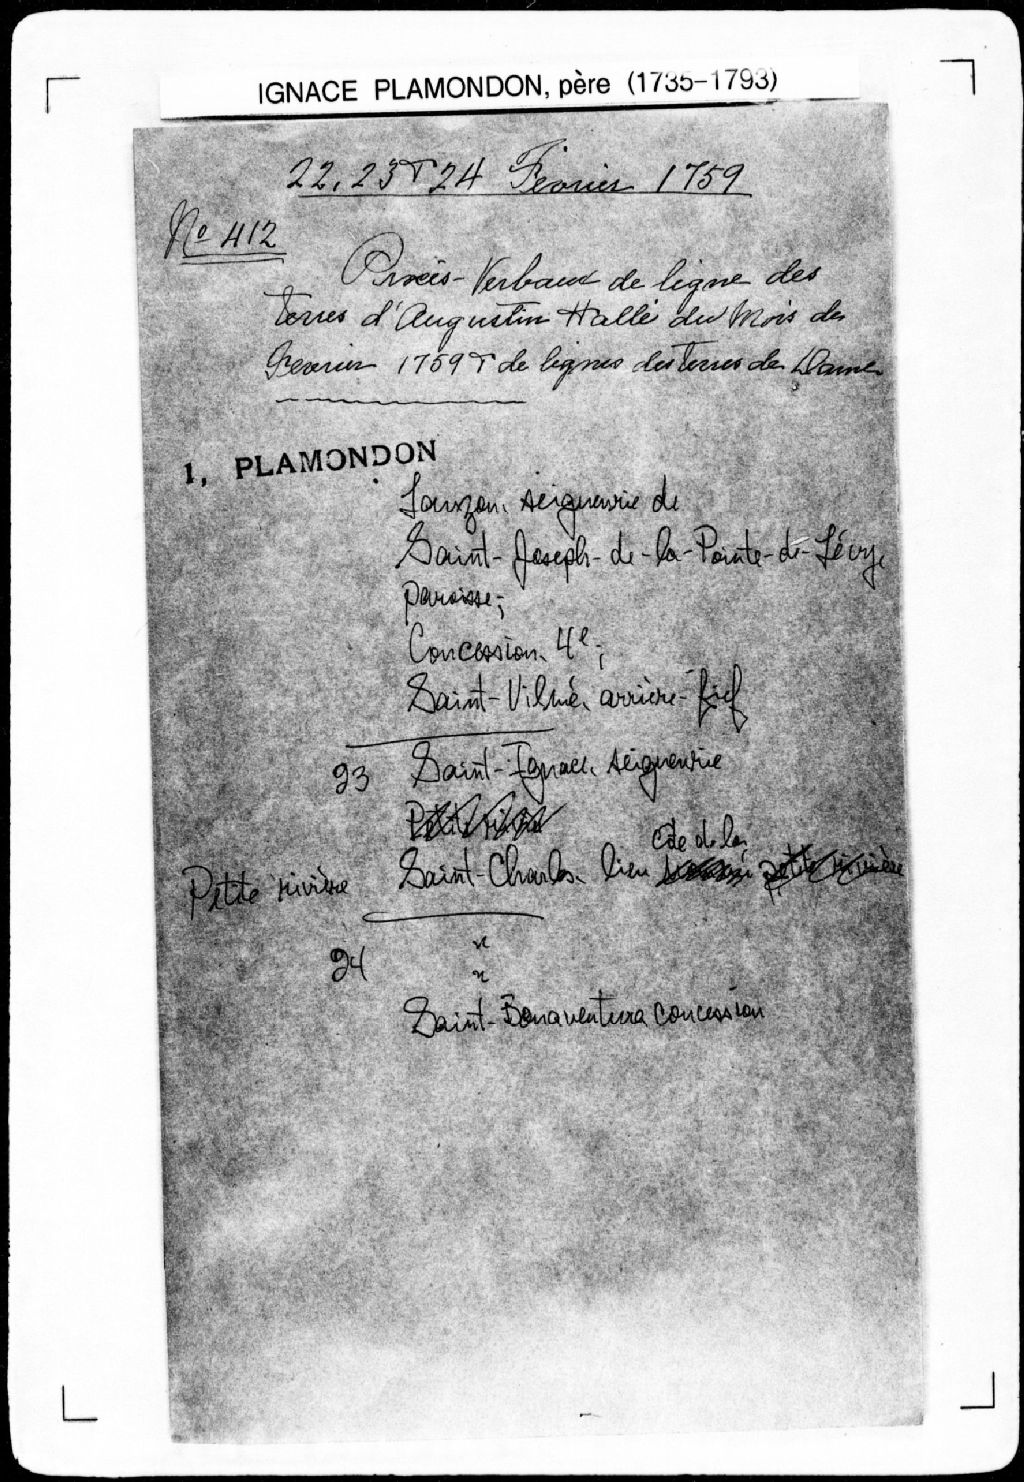 IGNACE PLAMONDON, père (1735-1793)
22, 23 & 24 Février 1759
No 412
Procès-Verbaux de ligne des
terres d'Augustin Hallé du Mois de
Fevrier 1759 & de lignes des terres de Dame
1, PLAMONDON
Lauzon, seigneurie de
Saint-Joseph-de-la-Pointe-de-Lévy,
paroisse;
Concession, 4e;
Saint-Vilmé, arrière-fief
23 Saint-Ignace, seigneurie
Petite rivière
côte de la
Petite rivière Saint-Charles, lieu petite rivière
24 "
"
Saint-Bonaventure concession